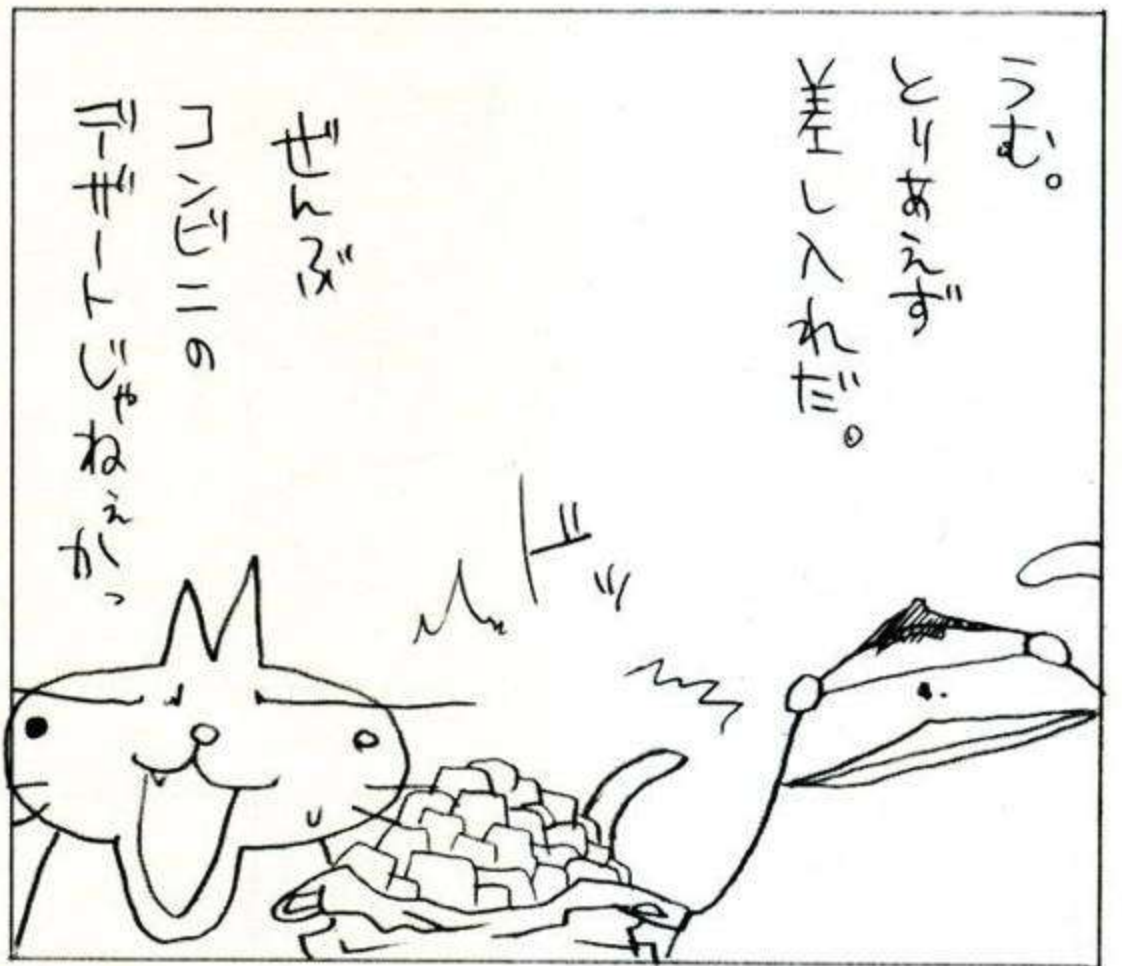 うむ。
とりあえず
差し入れだ。
ドッ
ぜんぶ
コンビニの
デザートじゃねぇかっ